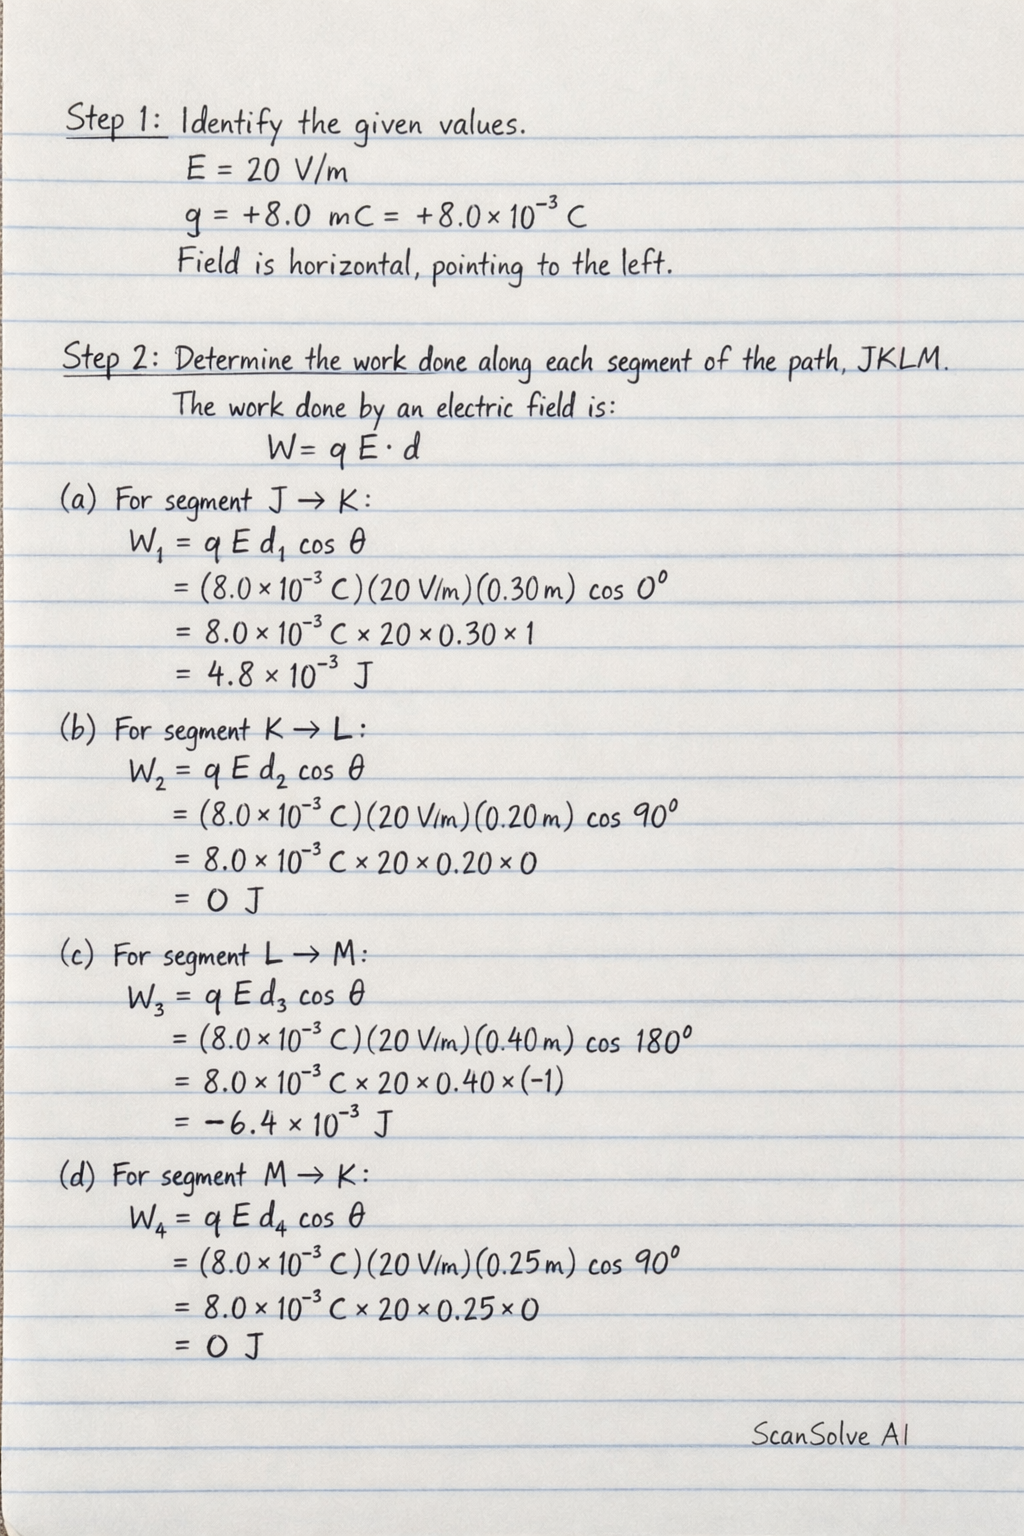 Step 1: Identify the given values.
E = 20 V/m
g = +8.0 mC = +8.0 × 10⁻³ C
Field is horizontal, pointing to the left.
Step 2: Determine the work done along each segment of the path, JKLM.
The work done by an electric field is:
W = q E · d
(a) For segment J → K:
W₁ = q E d₁ cos θ
= (8.0 × 10⁻³ C)(20 V/m)(0.30 m) cos 0°
= 8.0 × 10⁻³ C × 20 × 0.30 × 1
= 4.8 × 10⁻³ J
(b) For segment K → L:
W₂ = q E d₂ cos θ
= (8.0 × 10⁻³ C)(20 V/m)(0.20 m) cos 90°
= 8.0 × 10⁻³ C × 20 × 0.20 × 0
= 0 J
(c) For segment L → M:
W₃ = q E d₃ cos θ
= (8.0 × 10⁻³ C)(20 V/m)(0.40 m) cos 180°
= 8.0 × 10⁻³ C × 20 × 0.40 × (-1)
= -6.4 × 10⁻³ J
(d) For segment M → K:
W₄ = q E d₄ cos θ
= (8.0 × 10⁻³ C)(20 V/m)(0.25 m) cos 90°
= 8.0 × 10⁻³ C × 20 × 0.25 × 0
= 0 J
ScanSolve AI